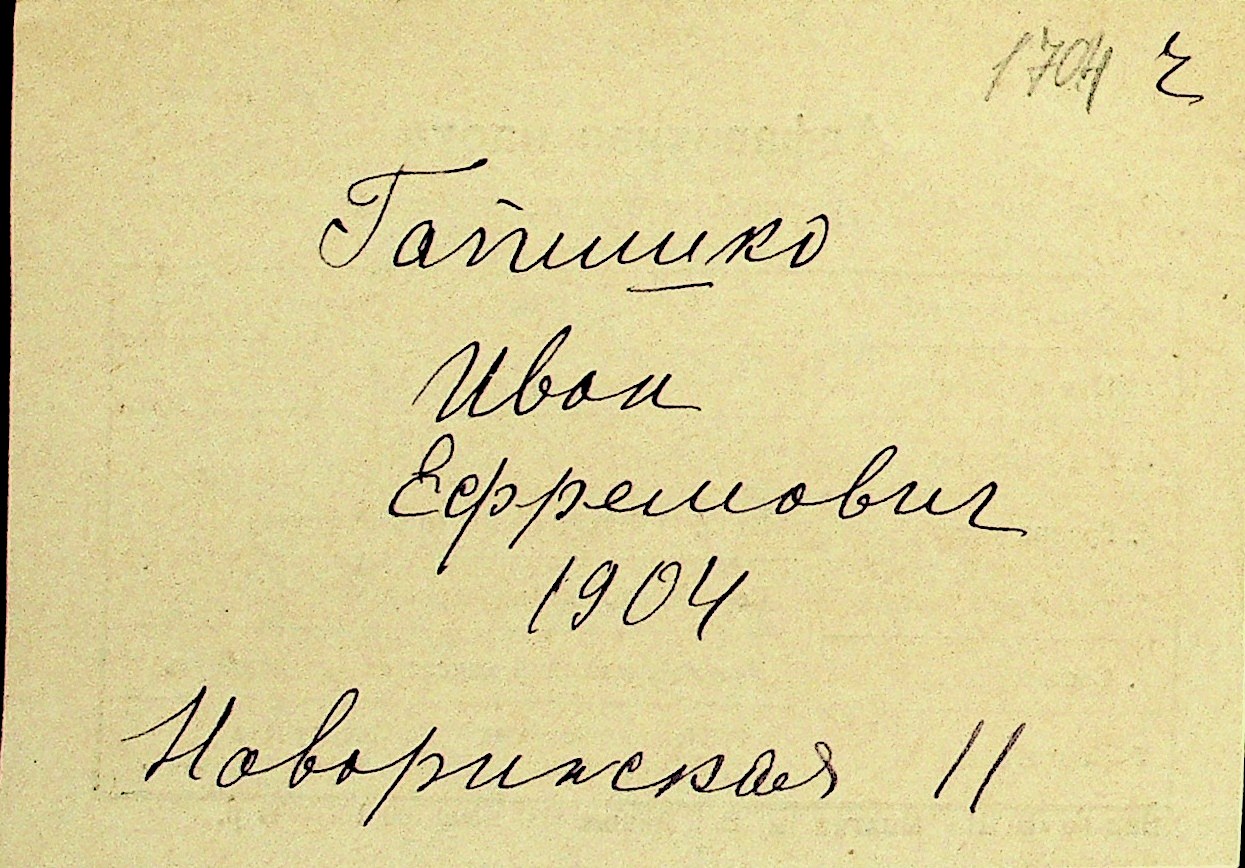 1704 ч
Гапишко
Иван
Ефремович
1904
Новоринская 11